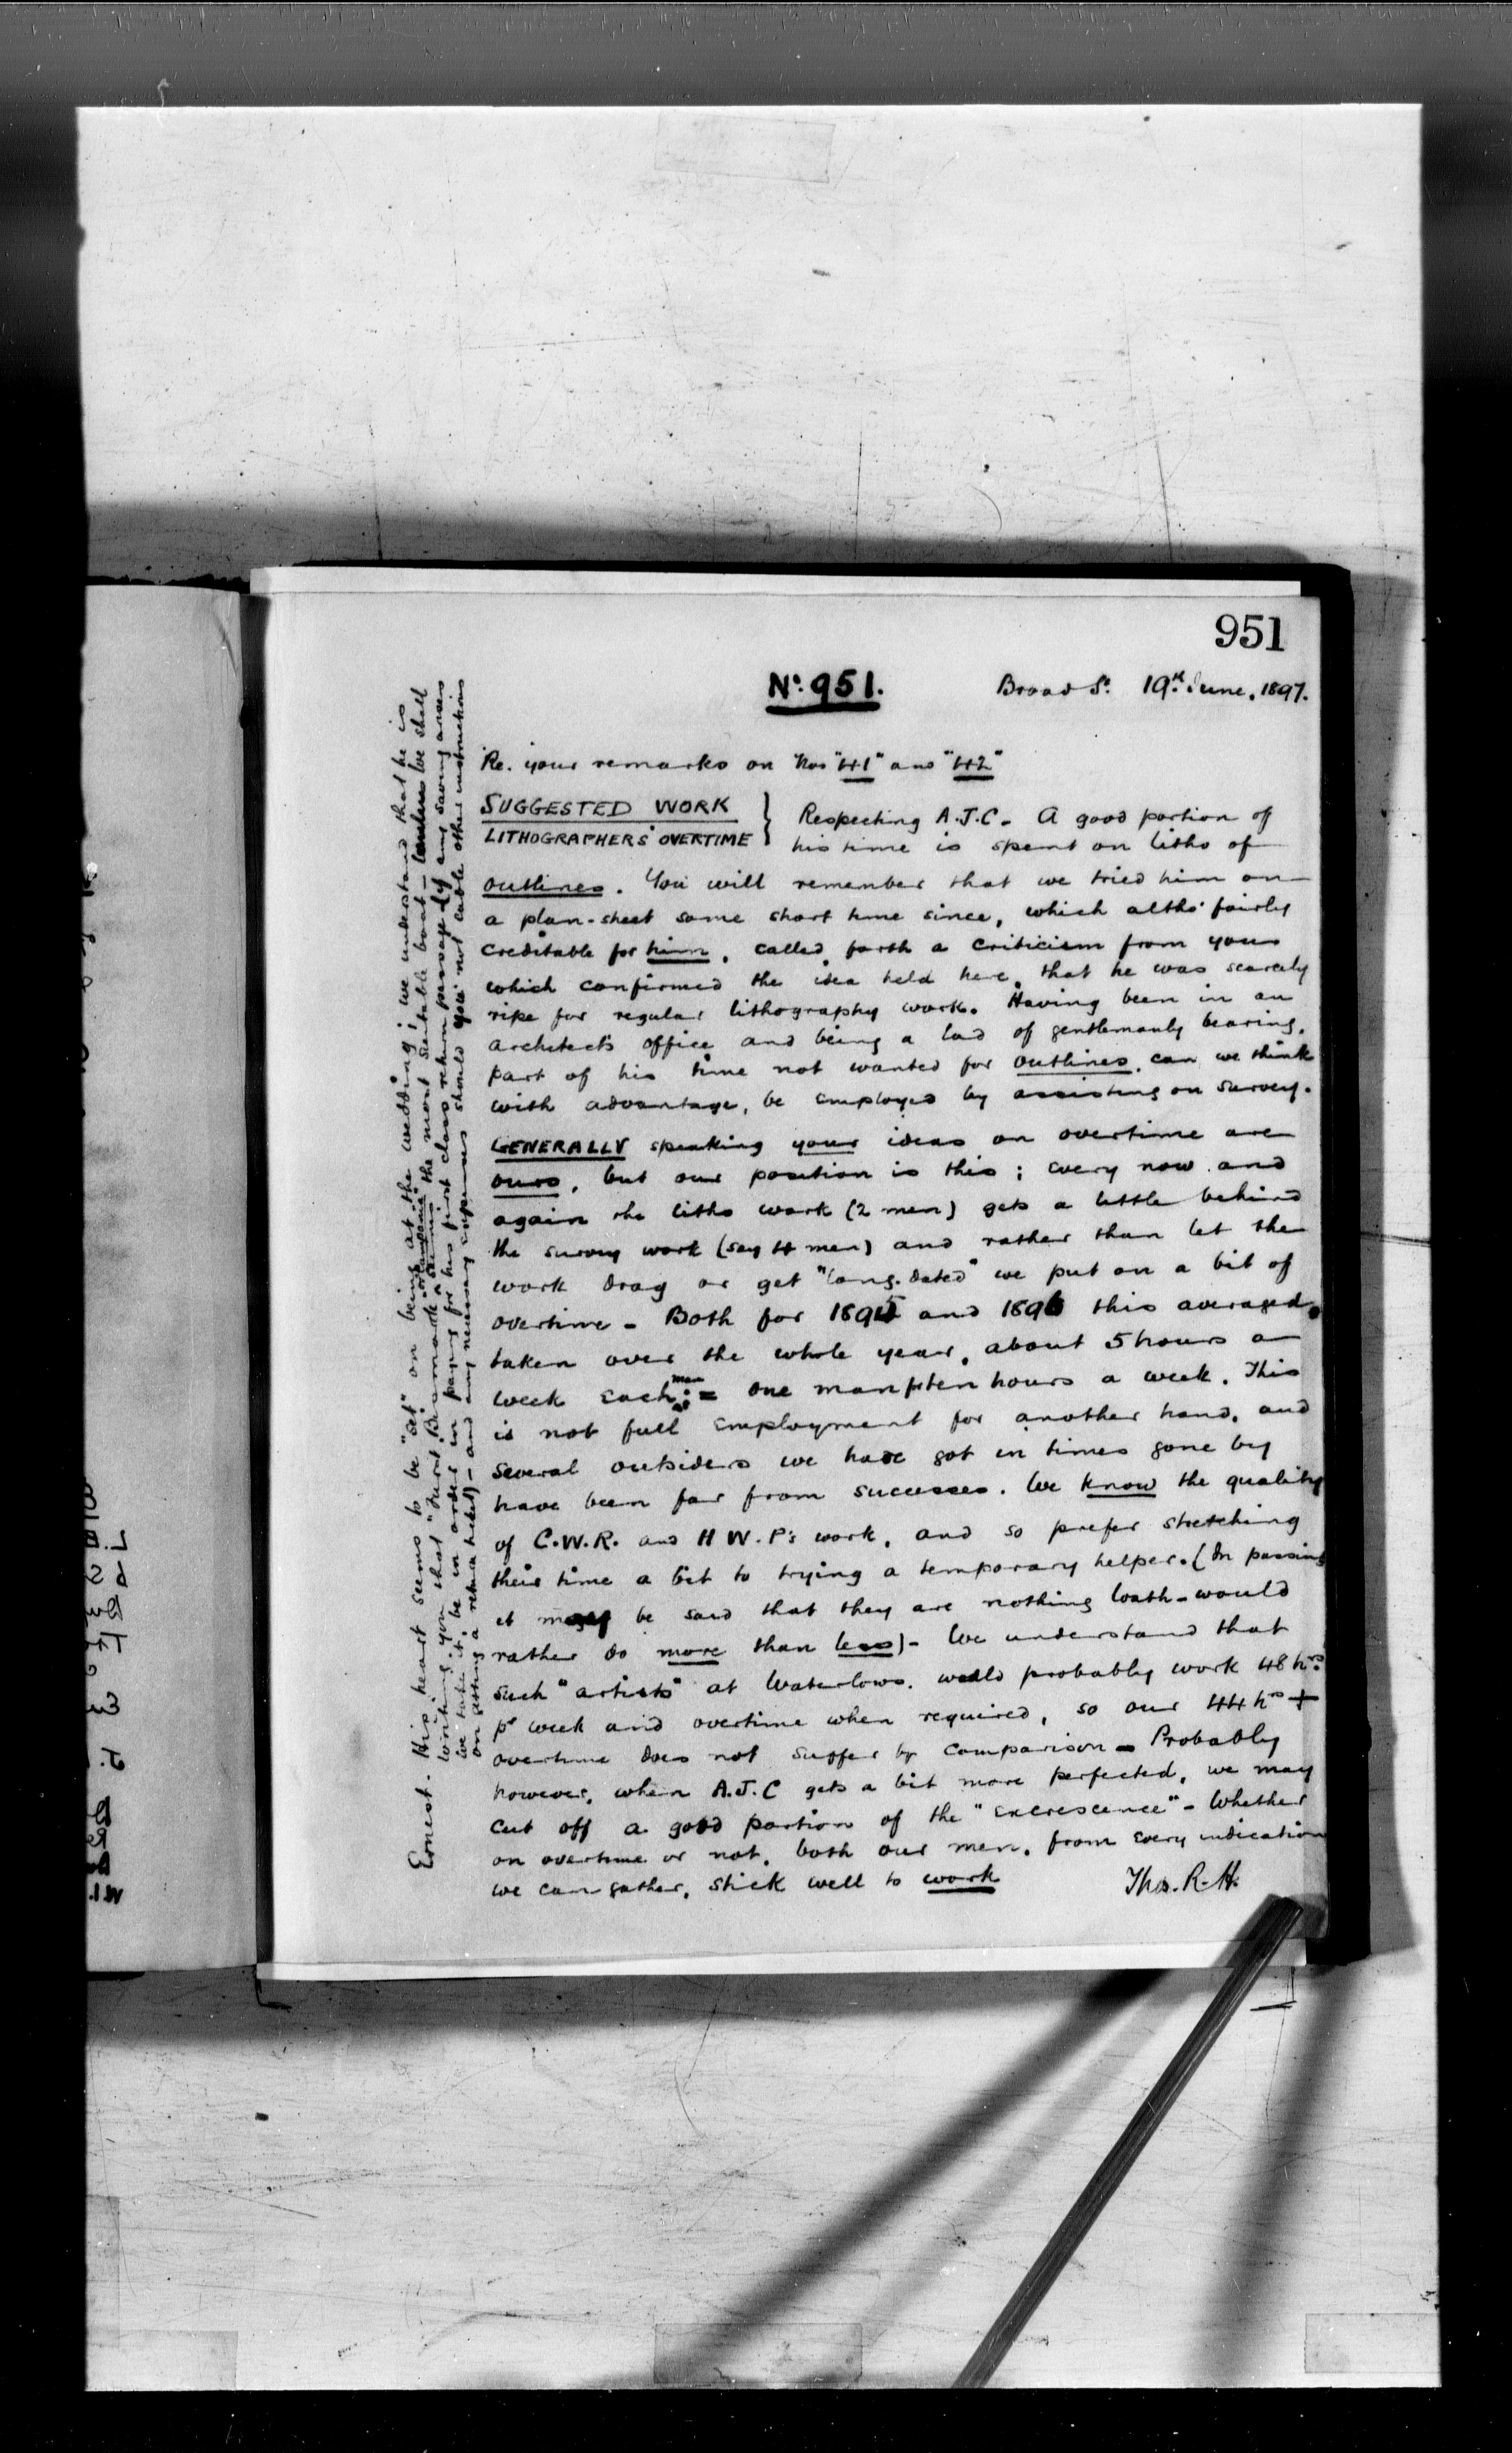 951
No. 951.
Broad St. 19th June, 1897.
Re. your remarks on Nos "41" and "42"
SUGGESTED WORK
LITHOGRAPHERS' OVERTIME
Respecting A.J.C. - A good portion of
his time is spent on litho of
outlines. You will remember that we tried him on
a plan-sheet some short time since, which altho' fairly
creditable for him, called forth a criticism from you
which confirmed the idea held here, that he was scarcely
ripe for regular lithography work. Having been in an
architect's office and being a lad of gentlemanly bearing,
part of his time not wanted for outlines, can we think
with advantage, be employed by assisting on survey.
GENERALLY speaking your ideas on overtime are
ours, but our position is this; every now and
again the litho work (2 men) gets a little behind
the survey work (say 4 men) and rather than let the
work drag or get "long-dated" we put on a bit of
overtime - Both for 1895 and 1896 this averaged,
taken over the whole year, about 5 hours a
week each man = one man ten hours a week. This
is not full employment for another hand, and
several outsiders we have got in times gone by
have been far from successes. We know the quality
of C.W.R. and H W. P's work, and so prefer stretching
their time a bit to trying a temporary helper. (In passing
it may be said that they are nothing loath - would
rather do more than less) - We understand that
such "artists" at Waterlows. would probably work 48 hrs
pr week and overtime when required, so our 44 hrs +
overtime does not suffer by comparison - Probably
however, when A.J.C gets a bit more perfected, we may
cut off a good portion of the "excrescence" - Whether
on overtime or not, both our men, from every indication
we can gather, stick well to work
Thos. R. H.
Ernest. His heart seems to be "set" on being at the wedding; we understand that he is
writing you that "Furst Bismarck" seems the most suitable boat - we shall
we take it be in order in paying for his first class return passage (if any saving arises
on getting a return ticket) - and any necessary expenses should you not cable other instructions